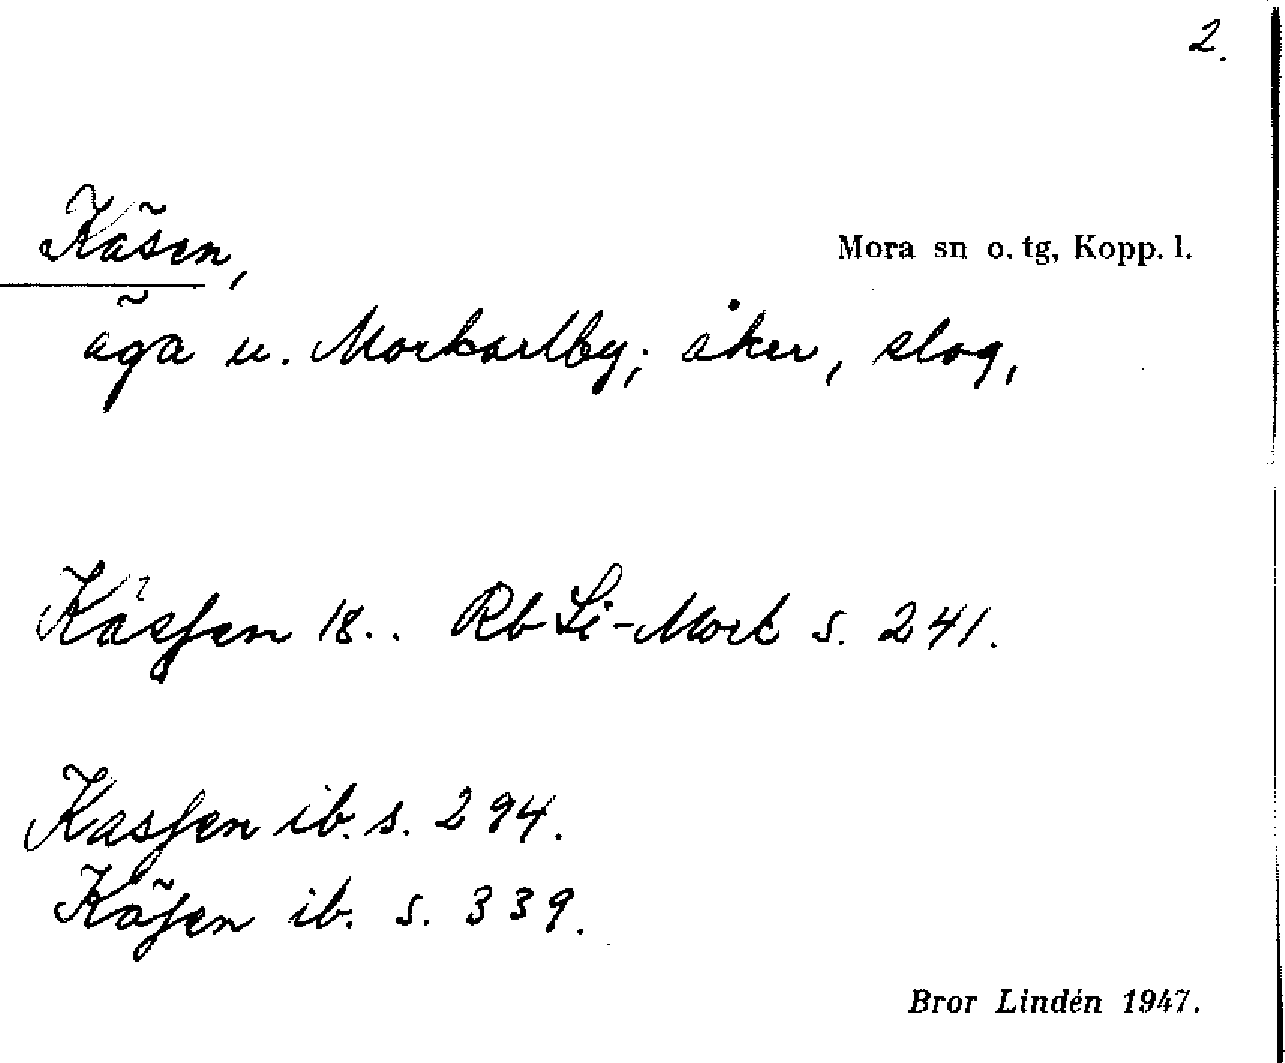 2.
Käsen,
Mora sn o. tg, Kopp. l.
äga u. Morkarlby; åker, slog,
Kässen 18.. Rb Li-Mork s. 241.
Kassen ib. s. 294.
Käsen ib. s. 339.
Bror Lindén 1947.